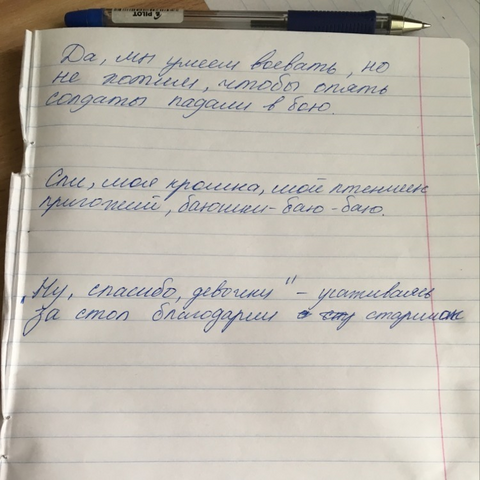 PILOT
Да, мы умеем воевать, но
не хотим, чтобы опять
солдаты падали в бою.
Спи, моя кромна, мой птенчик
пригожий, баюшки-баю-баю.
„Ну, спасибо, девочки" - усаживаясь
за стол благодарил старичок